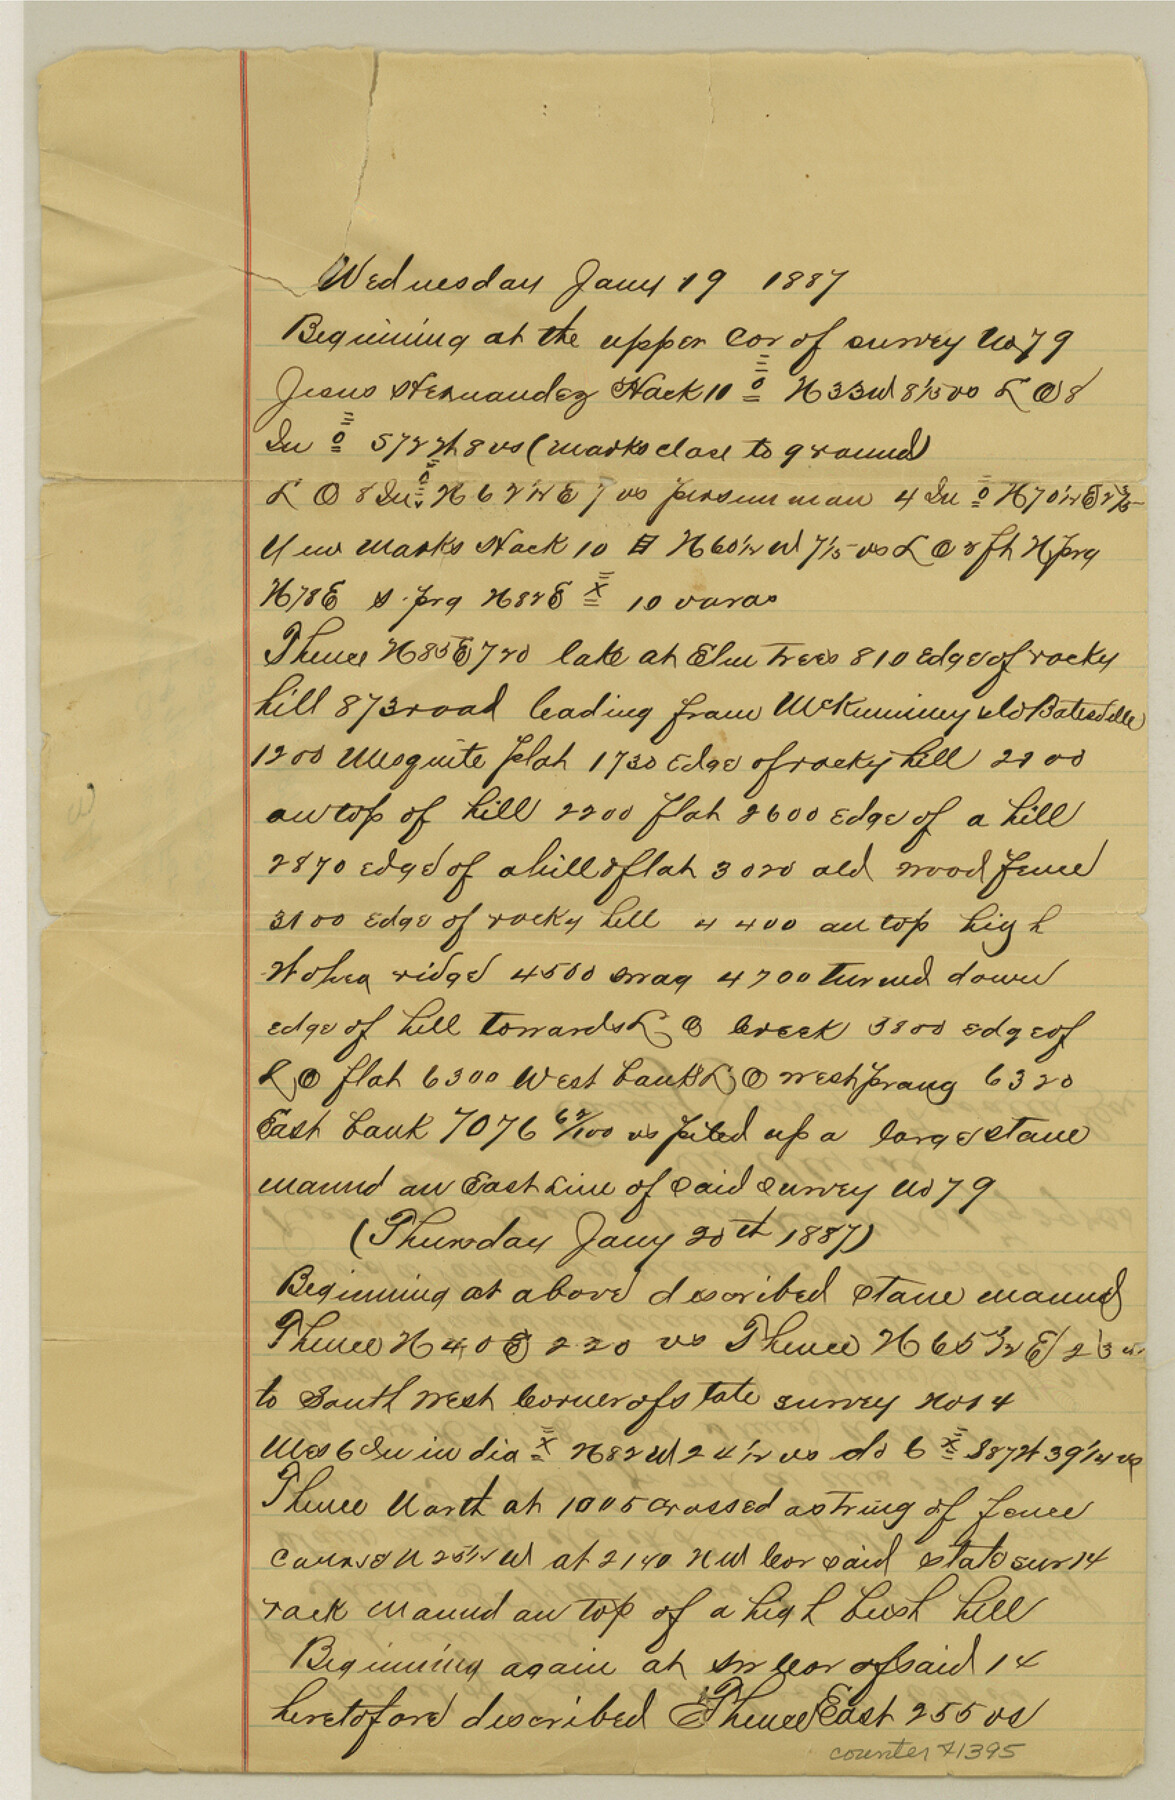 Wednesday Jany 19 1887
Beginning at the upper Cor of survey No 79
Jesus Hernandez Hack 10 N 33 W 8 1/5 vs L O 8
In S 72 W 8 vs (marks close to ground)
L O 8 In N 62 1/2 E 7 vs persimman 4 In N 70 1/2 E 2
New marks Hack 10 N 60 1/2 W 7 1/5 vs L O 2 ft N prg
N 78 E S. prg N 82 E X 10 varas
Thence N 85 E 720 lake at Elm trees 810 Edge of rocky
hill 873 road leading from McKinney to Batesville
1200 Mesquite flat 1730 Edge of rocky hill 2100
on top of hill 2200 flat 2600 Edge of a hill
2870 edge of a hill & flat 3020 old wood fence
3100 Edge of rocky hill 4400 on top high
ridge 4500 swag 4700 turned down
edge of hill towards L O Creek 3800 edge of
L O flat 6300 West bank L O west prong 6320
East bank 7076 62/100 vs piled up a large stone
mound on East line of said survey No 79
(Thursday Jany 20th 1887)
Beginning at above described stone mound
Thence N 40 E 220 vs Thence N 65 1/2 E
to South West Corner of state survey No 14
Mes 6 In in dia X N 82 W 24 1/2 vs do 6 X S 87 W 39 1/4 vs
Thence North at 1005 crossed a string of fence
course N 25 1/2 W at 2140 NW Cor said state sur 14
rock mound on top of a high bush hill
Beginning again at SW Cor of said 14
heretofore described Thence East 255 vs
counter 41395